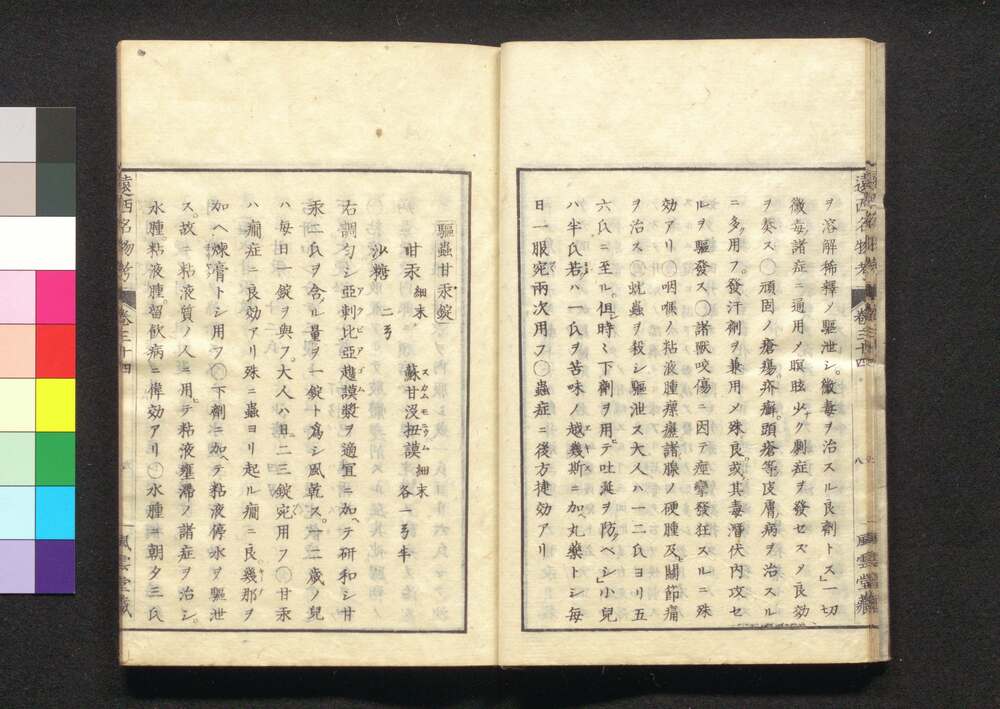 ヲ溶解稀釋ノ驅泄シ黴毒ヲ治スル良劑トス」一切
黴毒諸症ニ通用ノ瞑眩少ク劇症ヲ發セスメ良効
ヲ奏ス○頑固ノ瘡瘍疥癬頭瘡等皮膚病ヲ治スル
ニ多用フ發汗劑ヲ兼用メ殊良或其毒潛伏内攻セ
ルヲ驅發ス○諸獸咬傷ニ因テ痙攣發狂スルニ殊
効アリ○咽喉ノ粘液腫瘰癧諸腺ノ硬腫及關節痛
ヲ治ス○蚘蟲ヲ殺シ驅泄ス大人ハ一二氏ヨリ五
六氏ニ至ル但時〻下劑ヲ用テ吐涎ヲ防ベシ」小兒
ハ半氏若ハ一氏ヲ苦味ノ越幾斯ニ加ヘ丸藥トシ毎
日一服宛兩次用フ○蟲症ニ後方捷効アリ
遠西名物考 卷三十四 八 風雲堂藏
驅蟲甘汞錠
甘汞 細末 蘇甘沒扭謨 細末 各一ヲ半
スカムモニウム
沙糖 二ヲ
右調勻シ亞剌比亞趙謨漿ヲ適宜ニ加ヘテ研和シ甘
アラビアゴム
汞二氏ヲ含ル量ヲ一錠ト爲シ風乾ス一二歳ノ兒
ハ毎日一錠ヲ與フ大人ハ日二三錠宛用フ○甘汞
ハ癇症ニ良効アリ殊ニ蟲ヨリ起ル癇ニ良幾那ヲ
加ヘ煉膏トシ用フ○下劑ニ加ヘテ粘液停水ヲ驅泄
ス故ニ粘液質ノ人ニ用テ粘液壅滯ノ諸症ヲ治シ
水腫粘液腫留飲病ニ偉効アリ○水腫ニ朝夕三氏
遠西名物考 卷三十四 風雲堂藏